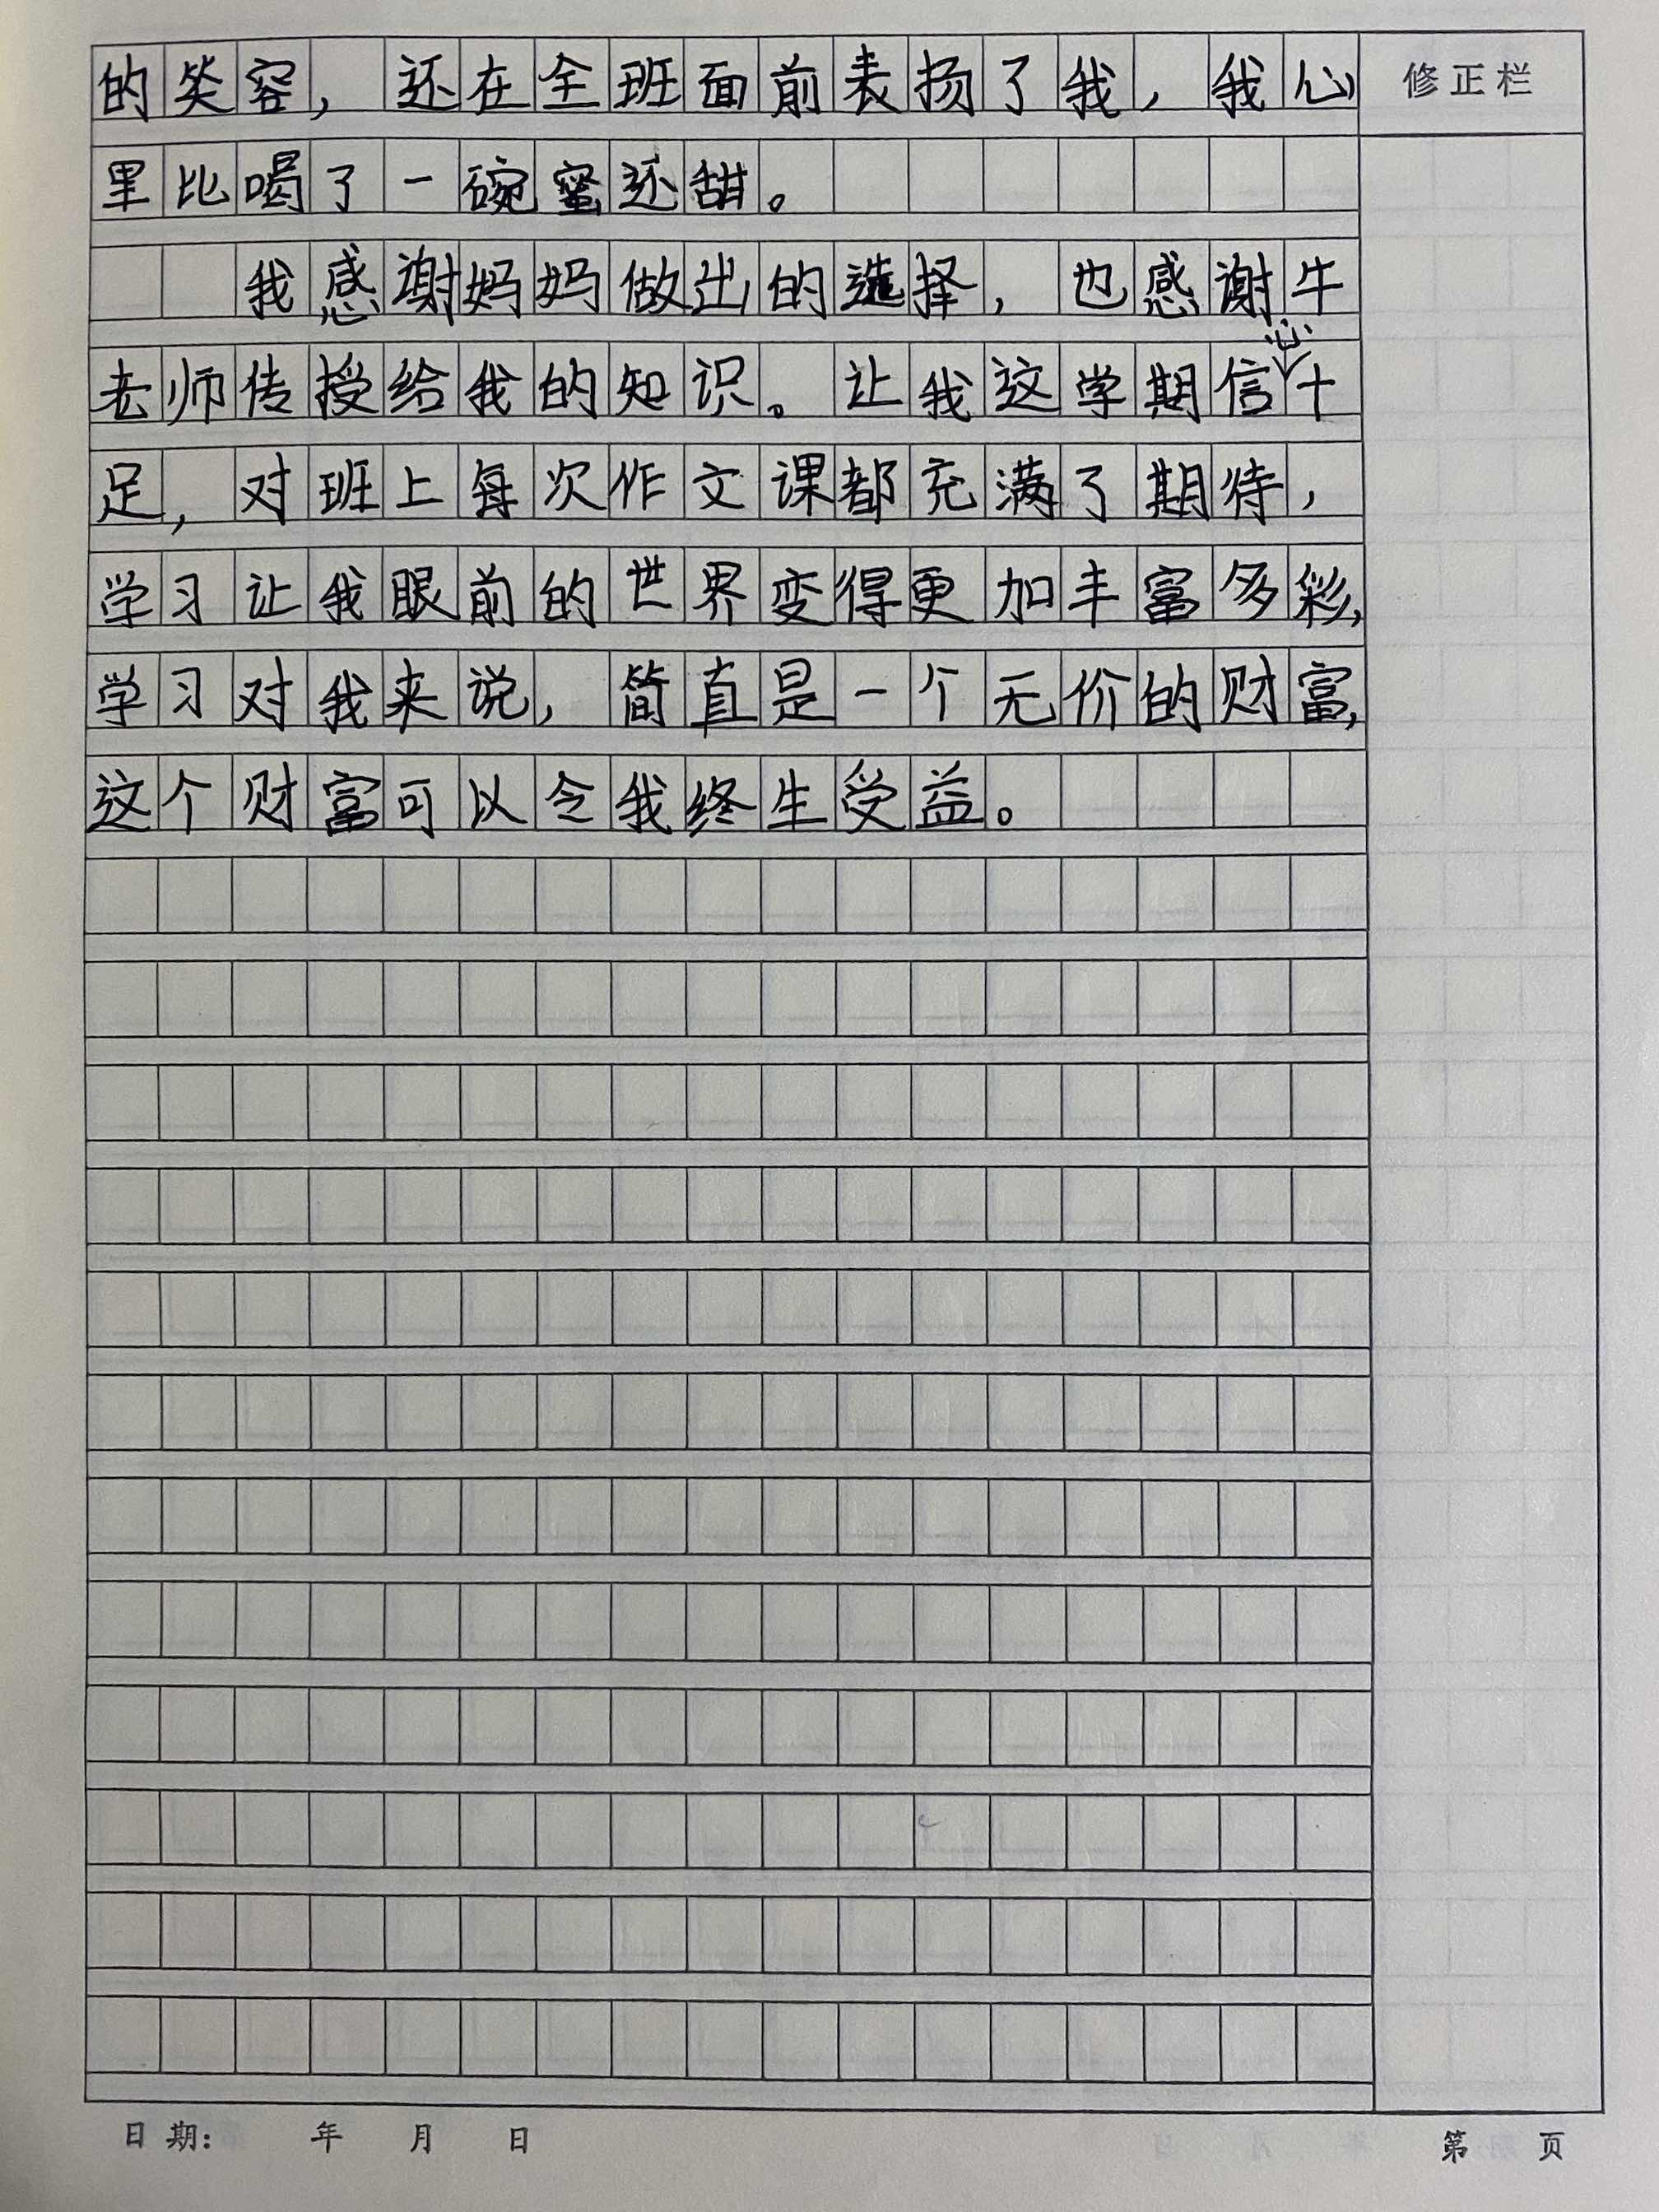 的笑容，还在全班面前表扬了我，我心
修正栏
里比喝了一碗蜜还甜。
我感谢妈妈做出的选择，也感谢牛
老师传授给我的知识。让我这学期信心十
足，对班上每次作文课都充满了期待，
学习让我眼前的世界变得更加丰富多彩，
学习对我来说，简直是一个无价的财富，
这个财富可以令我终生受益。
日期： 年 月 日
第 页